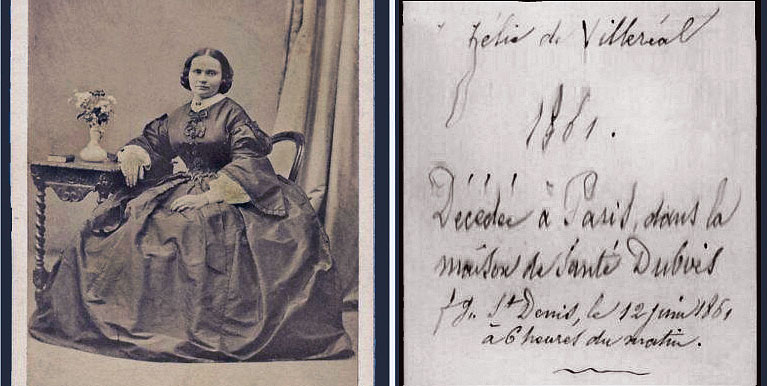 Zélie de Villeréal
1861.
Décédée à Paris, dans la
maison de Santé Dubois
fg. St Denis, le 12 juin 1861
à 6 heures du matin.